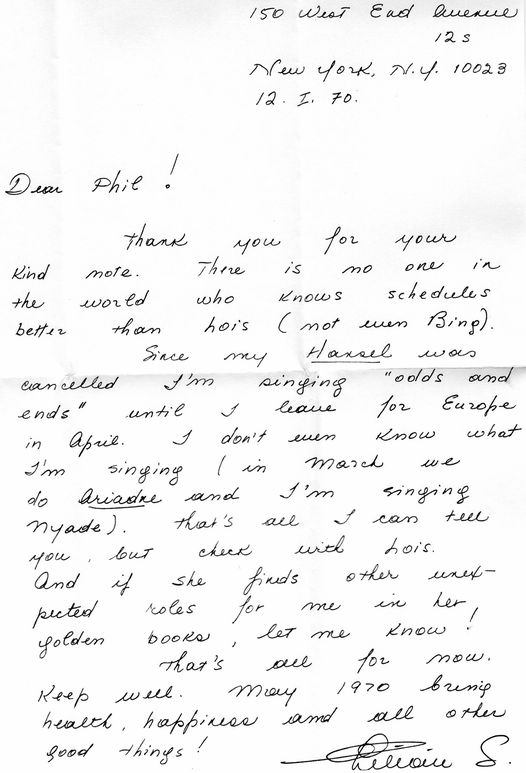 150 West End Avenue
12 s
New York, N.Y. 10023
12. I. 70.
Dear Phil!
Thank you for your
kind note. There is no one in
the world who knows schedules
better than Lois (not even Bing).
Since my Hansel was
cancelled I'm singing "odds and
ends" until I leave for Europe
in April. I don't even know what
I'm singing (in March we
do Ariadne and I'm singing
Nyade). That's all I can tell
you, but check with Lois.
And if she finds other unex-
pected roles for me in her
golden books, let me know!
That's all for now.
Keep well. May 1970 bring
health, happiness and all other
good things!
Lilian S.